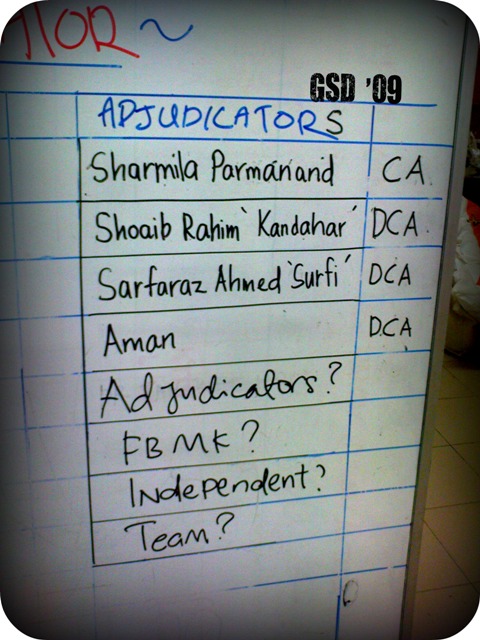 GSD '09
ADJUDICATORS
Sharmila Parmanand CA
Shoaib Rahim 'Kandahar' DCA
Sarfaraz Ahmed 'Surfi' DCA
Aman DCA
Adjudicators?
FBMK?
Independent?
Team?